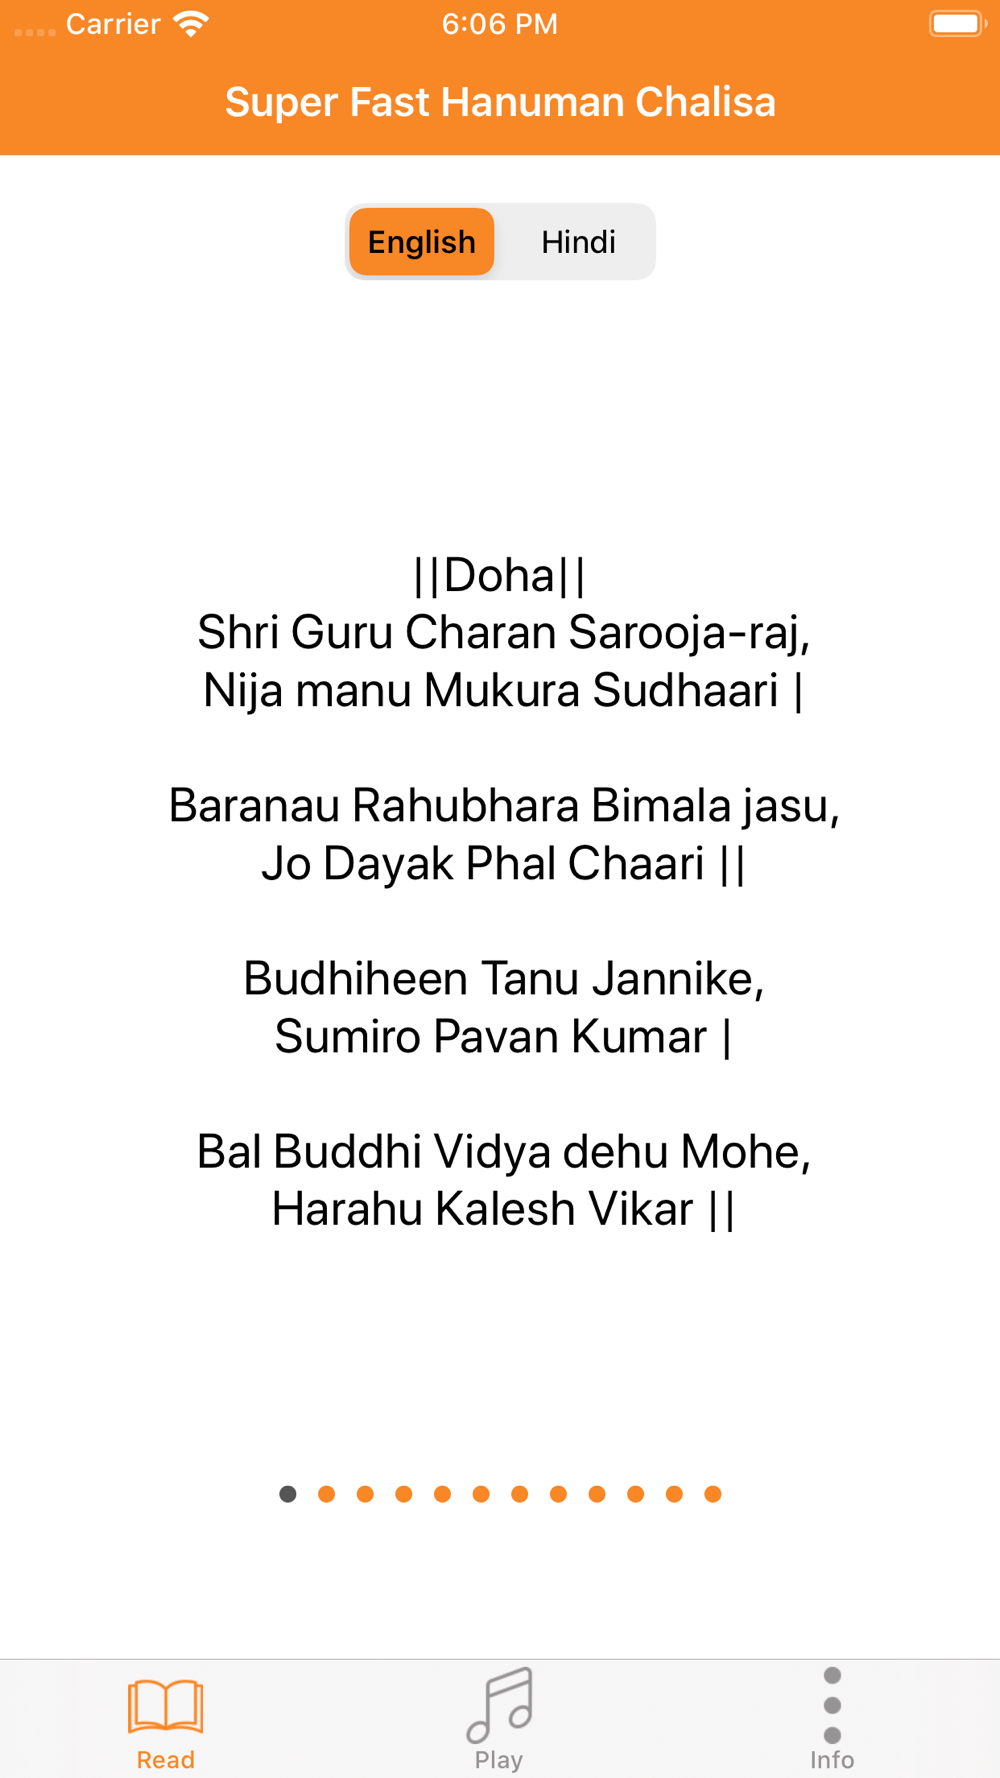 Carrier 6:06 PM
Super Fast Hanuman Chalisa
English Hindi
||Doha||
Shri Guru Charan Sarooja-raj,
Nija manu Mukura Sudhaari |
Baranau Rahubhara Bimala jasu,
Jo Dayak Phal Chaari ||
Budhiheen Tanu Jannike,
Sumiro Pavan Kumar |
Bal Buddhi Vidya dehu Mohe,
Harahu Kalesh Vikar ||
Read Play Info